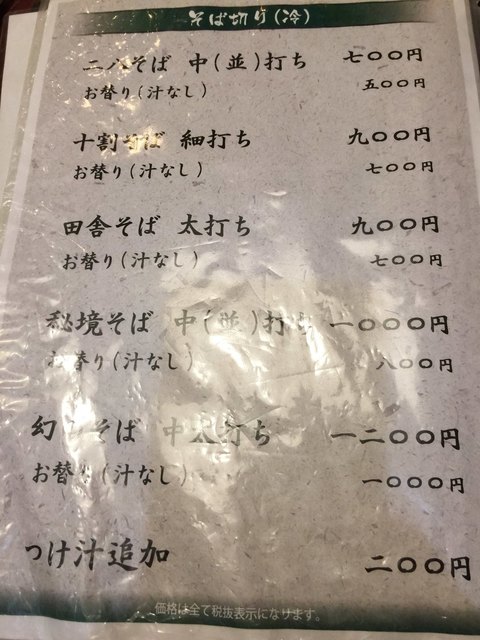 そば切り(冷)
二八そば 中(並)打ち 七〇〇円
お替り(汁なし) 五〇〇円
十割そば 細打ち 九〇〇円
お替り(汁なし) 七〇〇円
田舎そば 太打ち 九〇〇円
お替り(汁なし) 七〇〇円
秘境そば 中(並)打ち 一〇〇〇円
お替り(汁なし) 八〇〇円
幻のそば 中太打ち 一二〇〇円
お替り(汁なし) 一〇〇〇円
つけ汁追加 二〇〇円
価格は全て税抜表示になります。